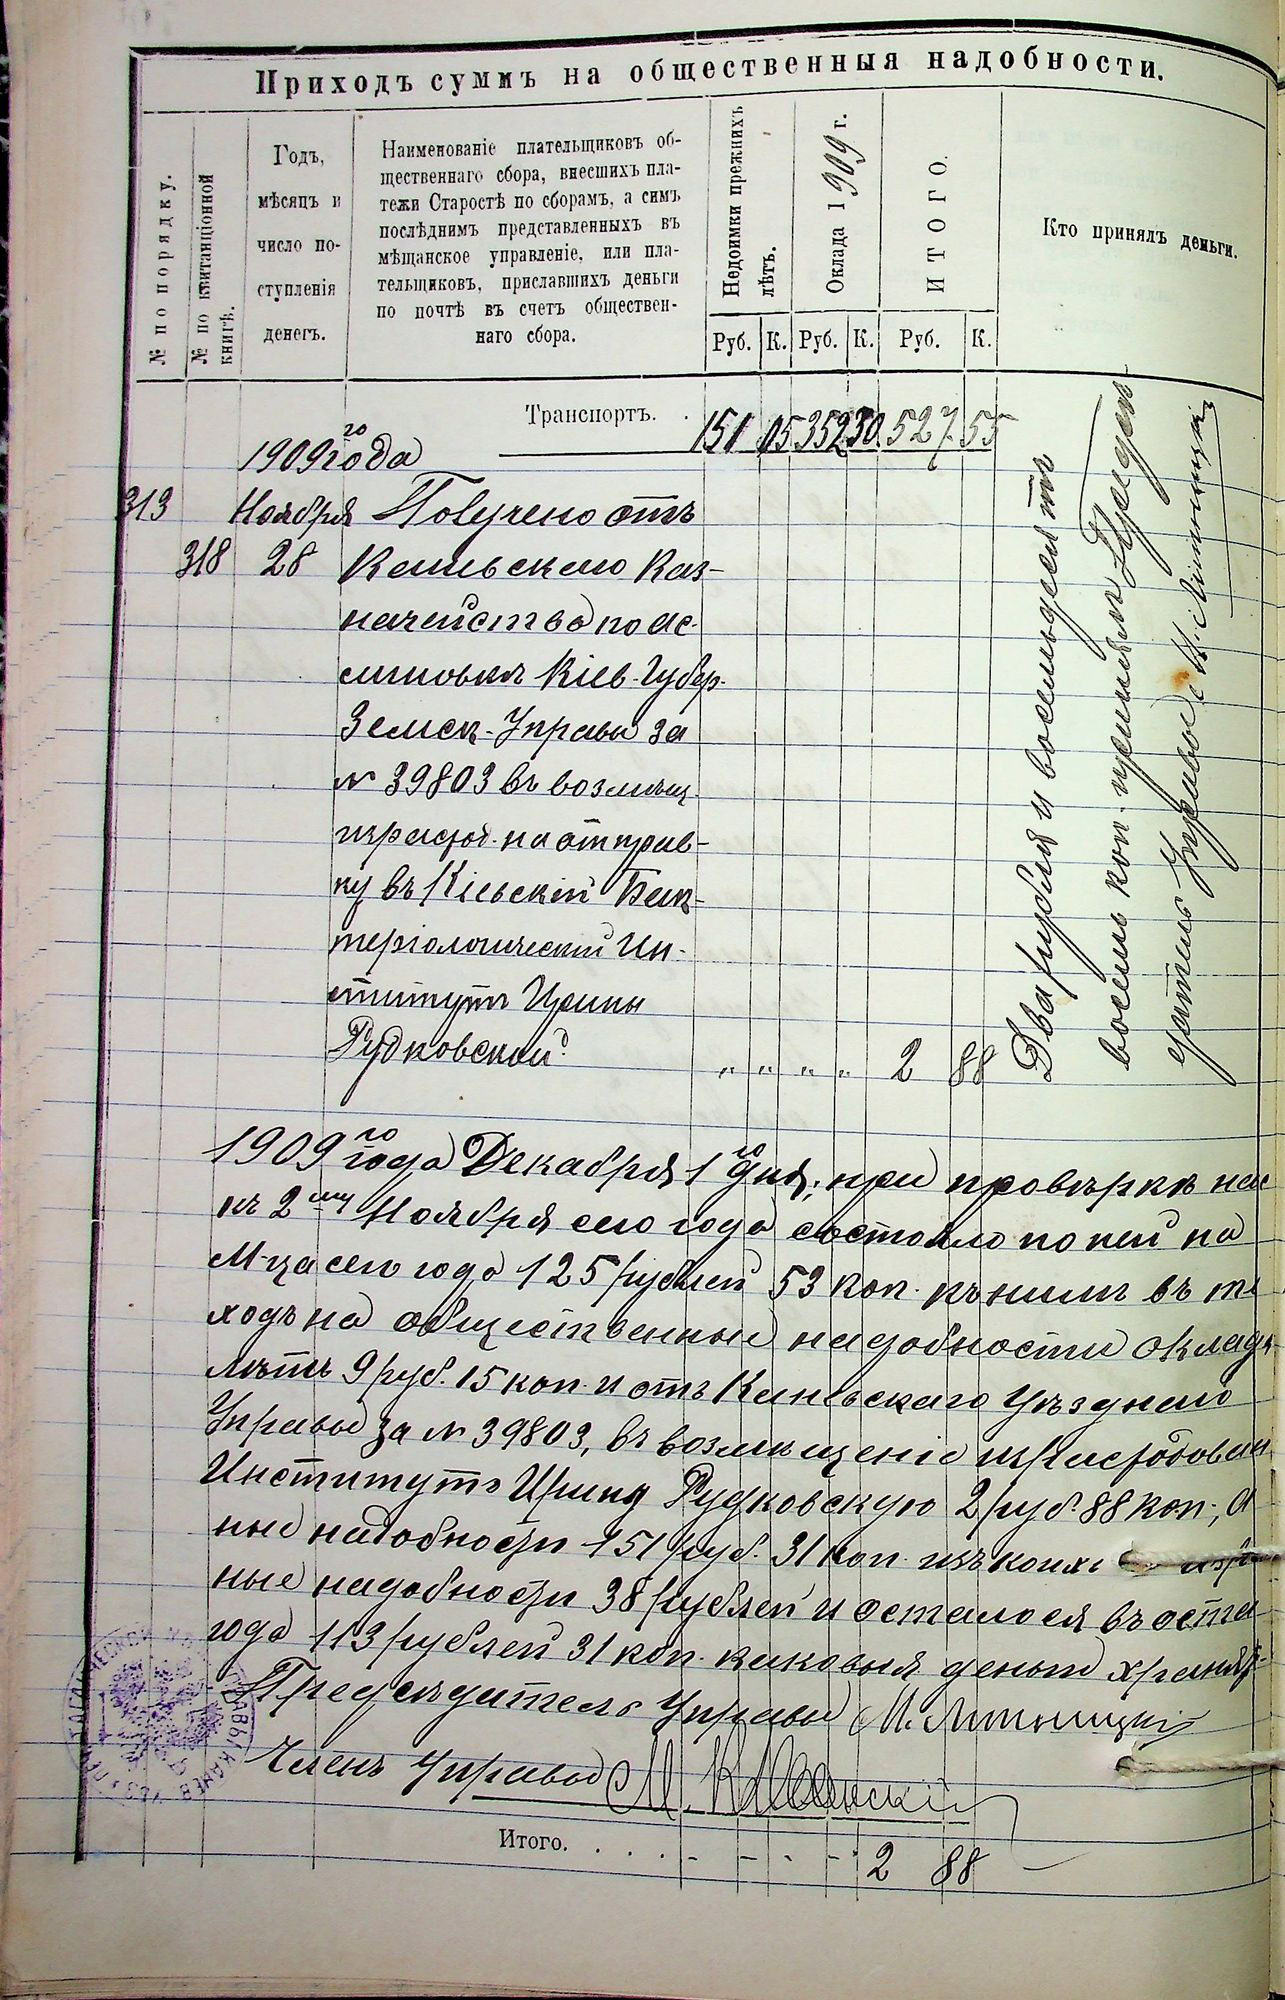 Приходъ суммъ на общественныя надобности.
№ по порядку.
№ по квитанціонной
книгѣ.
Годъ,
мѣсяцъ и
число по-
ступленія
денегъ.
Наименованіе плательщиковъ об-
щественнаго сбора, внесшихъ пла-
тежи Старостѣ по сборамъ, а симъ
послѣднимъ представленныхъ въ
мѣщанское управленіе, или пла-
тельщиковъ, приславшихъ деньги
по почтѣ въ счетъ обществен-
наго сбора.
Недоимки прежнихъ
лѣтъ.
Оклада 1909 г.
ИТОГО.
Кто принялъ деньги.
Руб. К. Руб. К. Руб. К.
Транспортъ. 151 05 352 30 527 55
1909го года
313 Ноября Получено отъ
318 28 Каневскаго Каз-
начейства по ас-
сигновкѣ Кіев. Губер.
Земск. Управы за
№ 39803 въ возмѣщ.
израсход. на отправ-
ку въ Кіевскій Бак-
теріологическій Ин-
ститутъ Ирины
Рудковской. " " " " 2 88
Два рубля и восемьдесятъ
восемь коп. принялъ Предсѣ-
датель Управы
1909го года Декабря 1го дня, при провѣркѣ
къ 2му Ноября сего года состояло по ней на
М-ца сего года 125 рублей 53 коп. къ нимъ въ
ходъ на общественныя надобности оклада
лѣтъ 9 руб. 15 коп. и отъ Каневскаго Уѣзднаго
Управы за № 39803, въ возмѣщеніе израсходован
Институтъ Ирину Рудковскую 2 руб. 88 коп., а
ныя надобности 151 руб. 31 коп. изъ коихъ
ныя надобности 38 рублей и осталося въ оста
года 113 рублей 31 коп. каковыя деньги хранят
Предсѣдатель Управы
Членъ Управы М.
Итого. 2 88